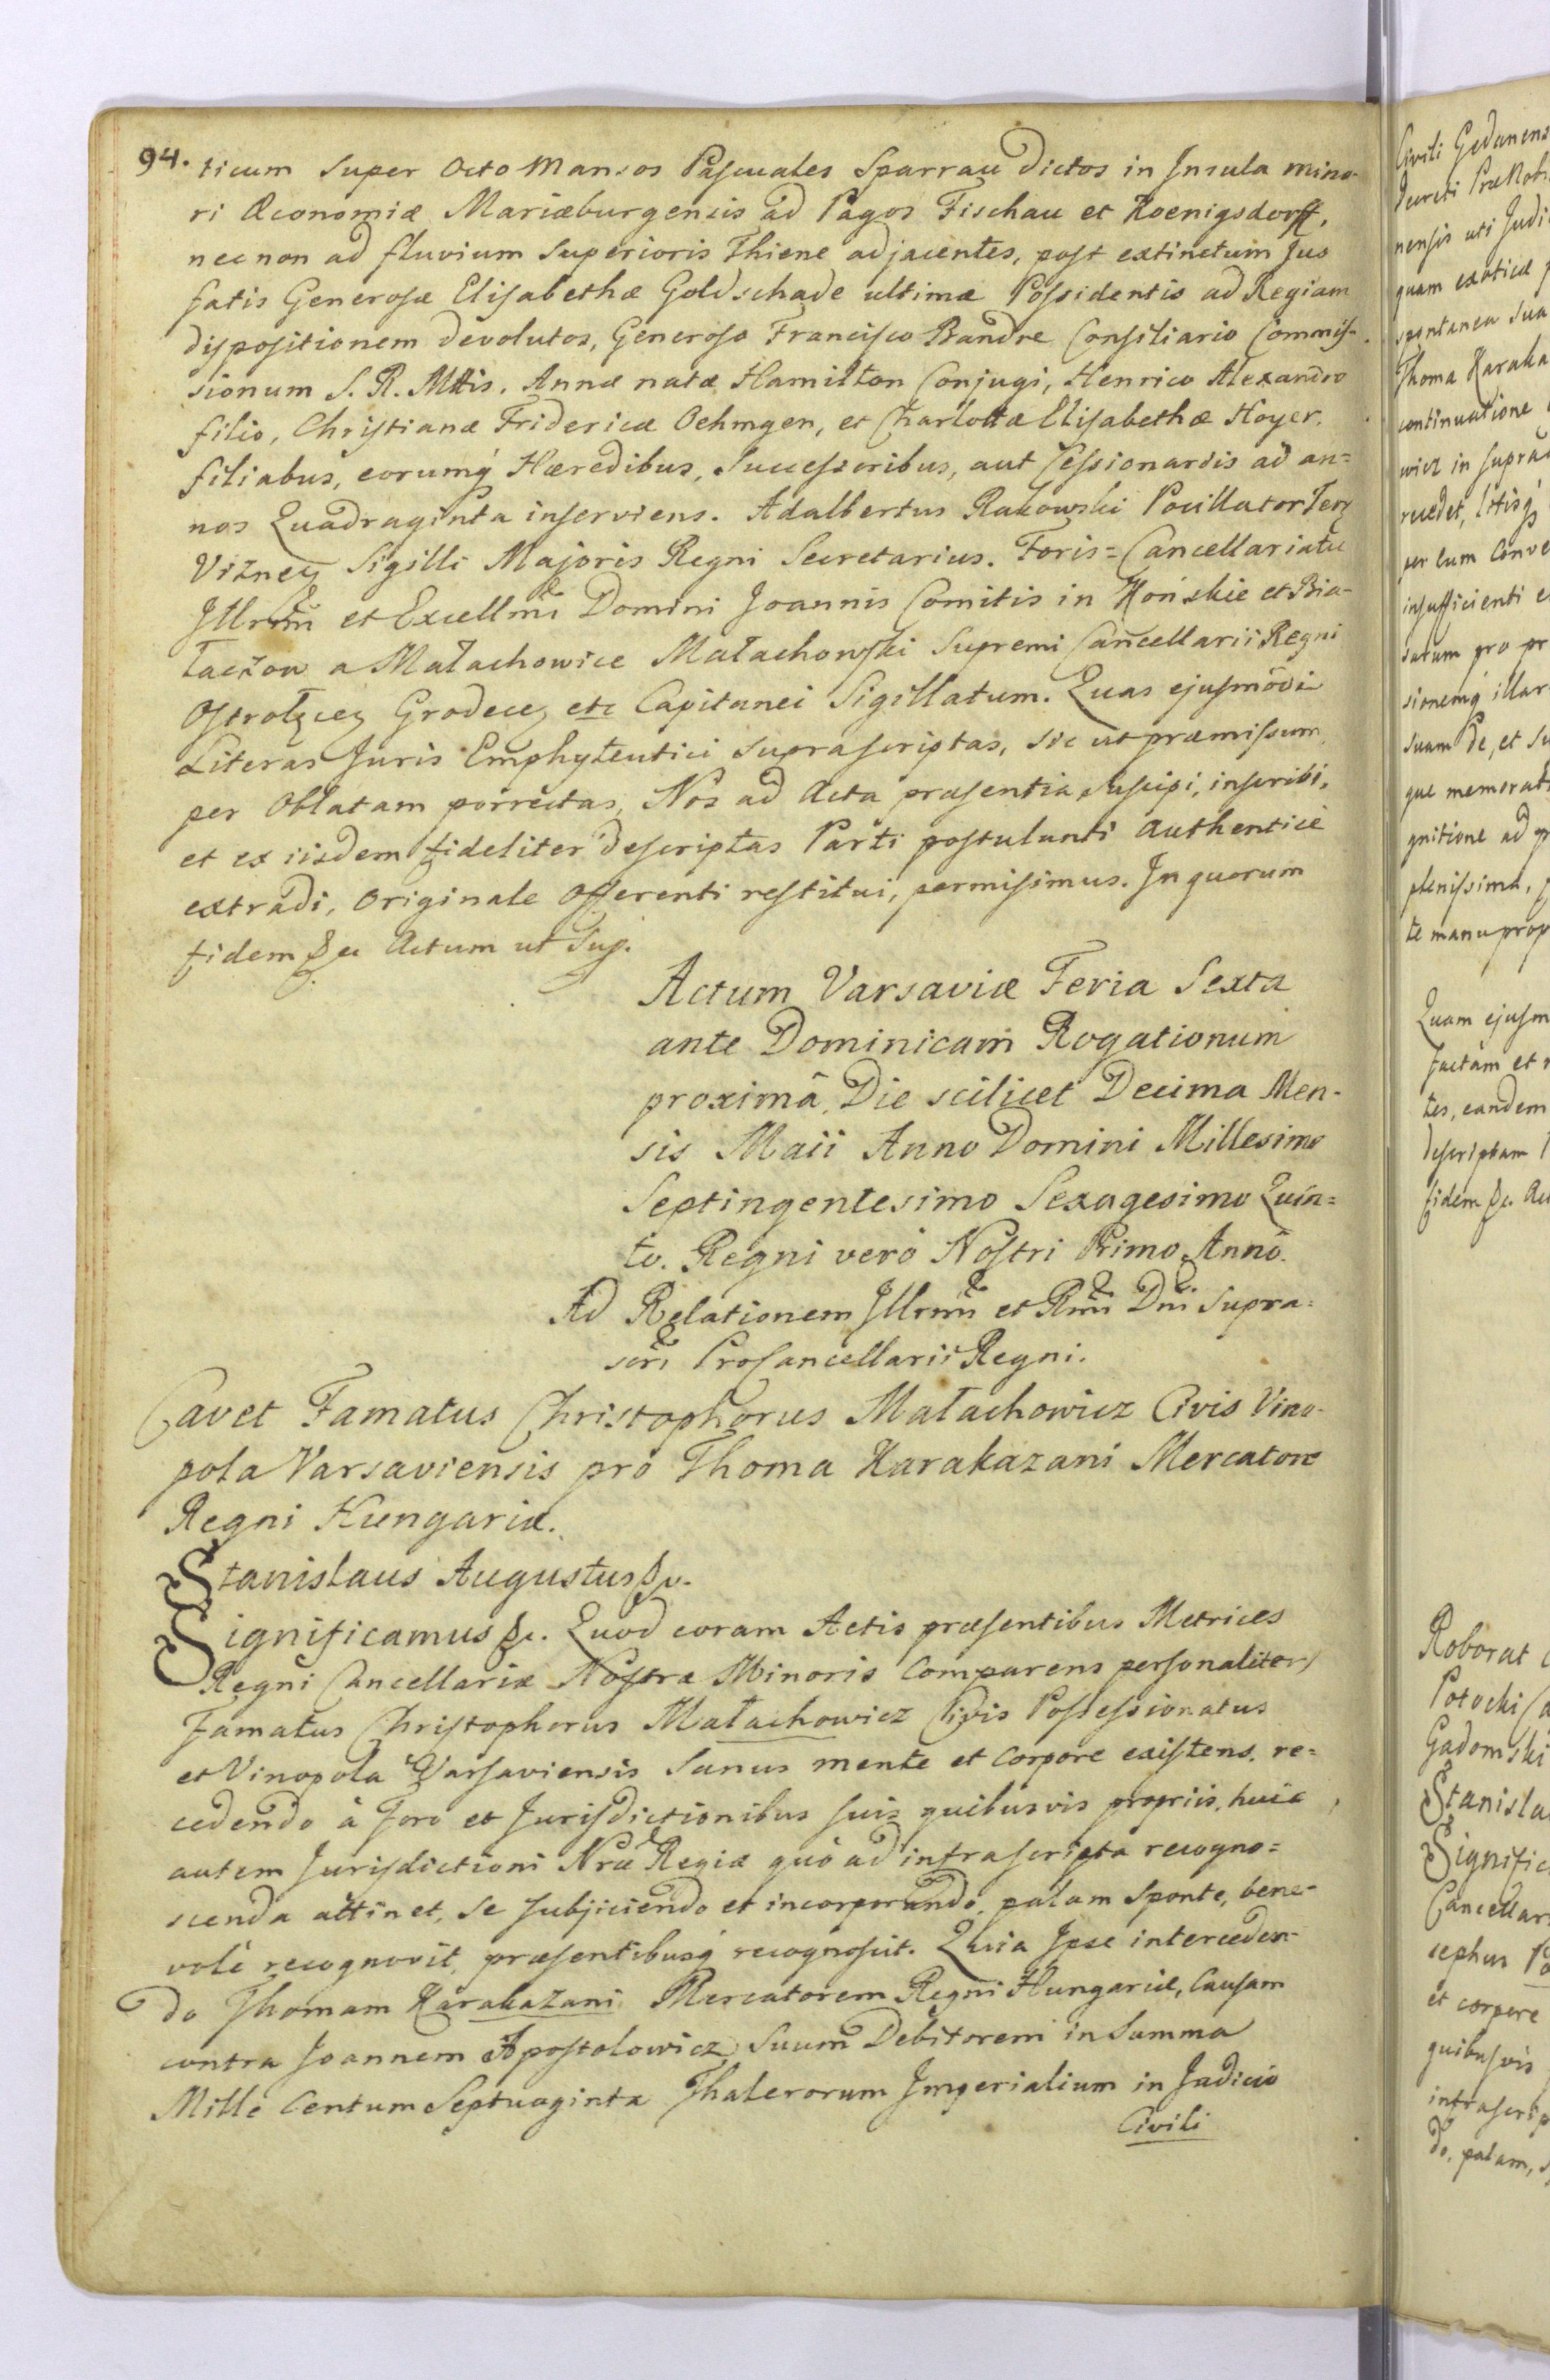 94. ticum super Octo Mansos Pascuales Sparrau Dictos in Insula mino-
ri Œconomiæ Mariæburgensis ad Pagos Fischau et Koenigsdorff,
nec non ad fluvium superioris Thiene adjacentes, post extinctum Jus
fatis Generosæ Elisabethæ Goldschade ultimæ Possidentis ad Regiam
dispositionem devolutos, Generoso Francisco Brandre Consiliario Commis-
sionum S. R. Mttis. Annæ natæ Hamilton Conjugi, Henrico Alexandro
filio, Christianæ Fridericæ Oehmgen, et Charlottæ Elisabethæ Hoyer.
filiabus, eorumq́ Hæredibus, Successoribus, aut Cessionariis ad an=
nos Quadraginta inserviens. Adalbertus Rakowski Pocillator Terrę
Viznen Sigilli Majoris Regni Secretarius. Foris=Cancellariatu
Illrmi et Excellmi Domini Joannis Comitis in Końskie et Bia-
łaczow a Małachowice Małachowski Supremi Cancellarii Regni
Ostrołęcen Grodecen etc Capitanei Sigillatum. Quas ejusmodi
Literas Juris Emphyteutici suprascriptas, sic ut præmissum
per Oblatam porrectas, Nos ad Acta præsentia suscipi, inscribi,
et ex iisdem fideliter descriptas Parti postulanti authenticè
extradi, Originale Offerenti restitui, permisimus. In quorum
fidem &c Actum ut Sup.
Actum Varsaviæ Feria Sexta
ante Dominicam Rogationum
proximâ, Die scilicet Decima Men-
sis Maii Anno Domini Millesimo
Septingentesimo Sexagesimo Quin=
to. Regni verò Nostri Primo Annô.
Ad Relationem Illrmi et Rmi Dni supra=
scri ProCancellarii Regni.
Cavet Famatus Christophorus Małachowicz Civis Vino-
pola Varsaviensis pro Thoma Karakazani Mercatore
Regni Hungariæ.
Stanislaus Augustus &c.
Significamus &c. Quod coram Actis præsentibus Metrices
Regni Cancellariæ Nostræ Minoris Comparens personaliter
Famatus Christophorus Małachowicz Civis Possessionatus
et Vinopola Varsaviensis Sanus mente et Corpore existens, re=
cedendo à Foro et Jurisdictionibus suis quibusvis propriis, huic
autem Jurisdictioni Nræ Regiæ quò ad infrascripta recogno=
scenda attinet, se subjiciendo et incorporando, palam sponte, bene-
volè recognovit, præsentibusq́ recognoscit. Quia Ipse interceden-
do Thomam Karakazani Mercatorem Regni Hungariæ, Causam
contra Joannem Apostolowicz Suum Debitorem in Summa
Mille Centum Septuaginta Thalerorum Imperialium in Judicio
Civili
Civili Gedanens
Decreti
nensis uti Judi
quam exoticæ
spontanea sua
Thoma Karaka
continuatione
wicz in supra
recedet, litisq́
per eum Conve
insufficienti e
satum pro pr
sionemq́ illar
suam de, et su
que memorat
gnitione ad
plenissima,
te manu prop
Quam ejusm
factam et r
tes, eandem
descriptam
fidem &c. Act
Roborat
Potocki Ca
Gadomski
Stanisla
Signific
Cancellar
sephus Po
et corpore
quibusvis
infrascrip
do, palam, s